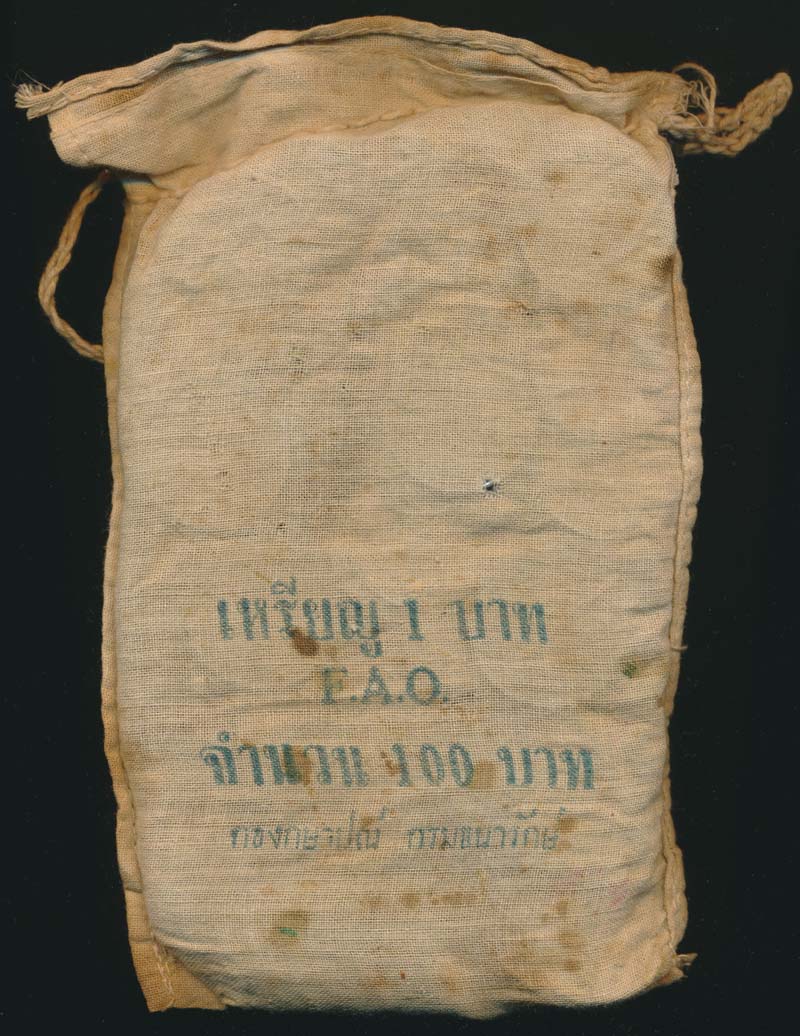 เหรียญ 1 บาท
F.A.O.
จำนวน 100 บาท
กองกษาปณ์ กรมธนารักษ์